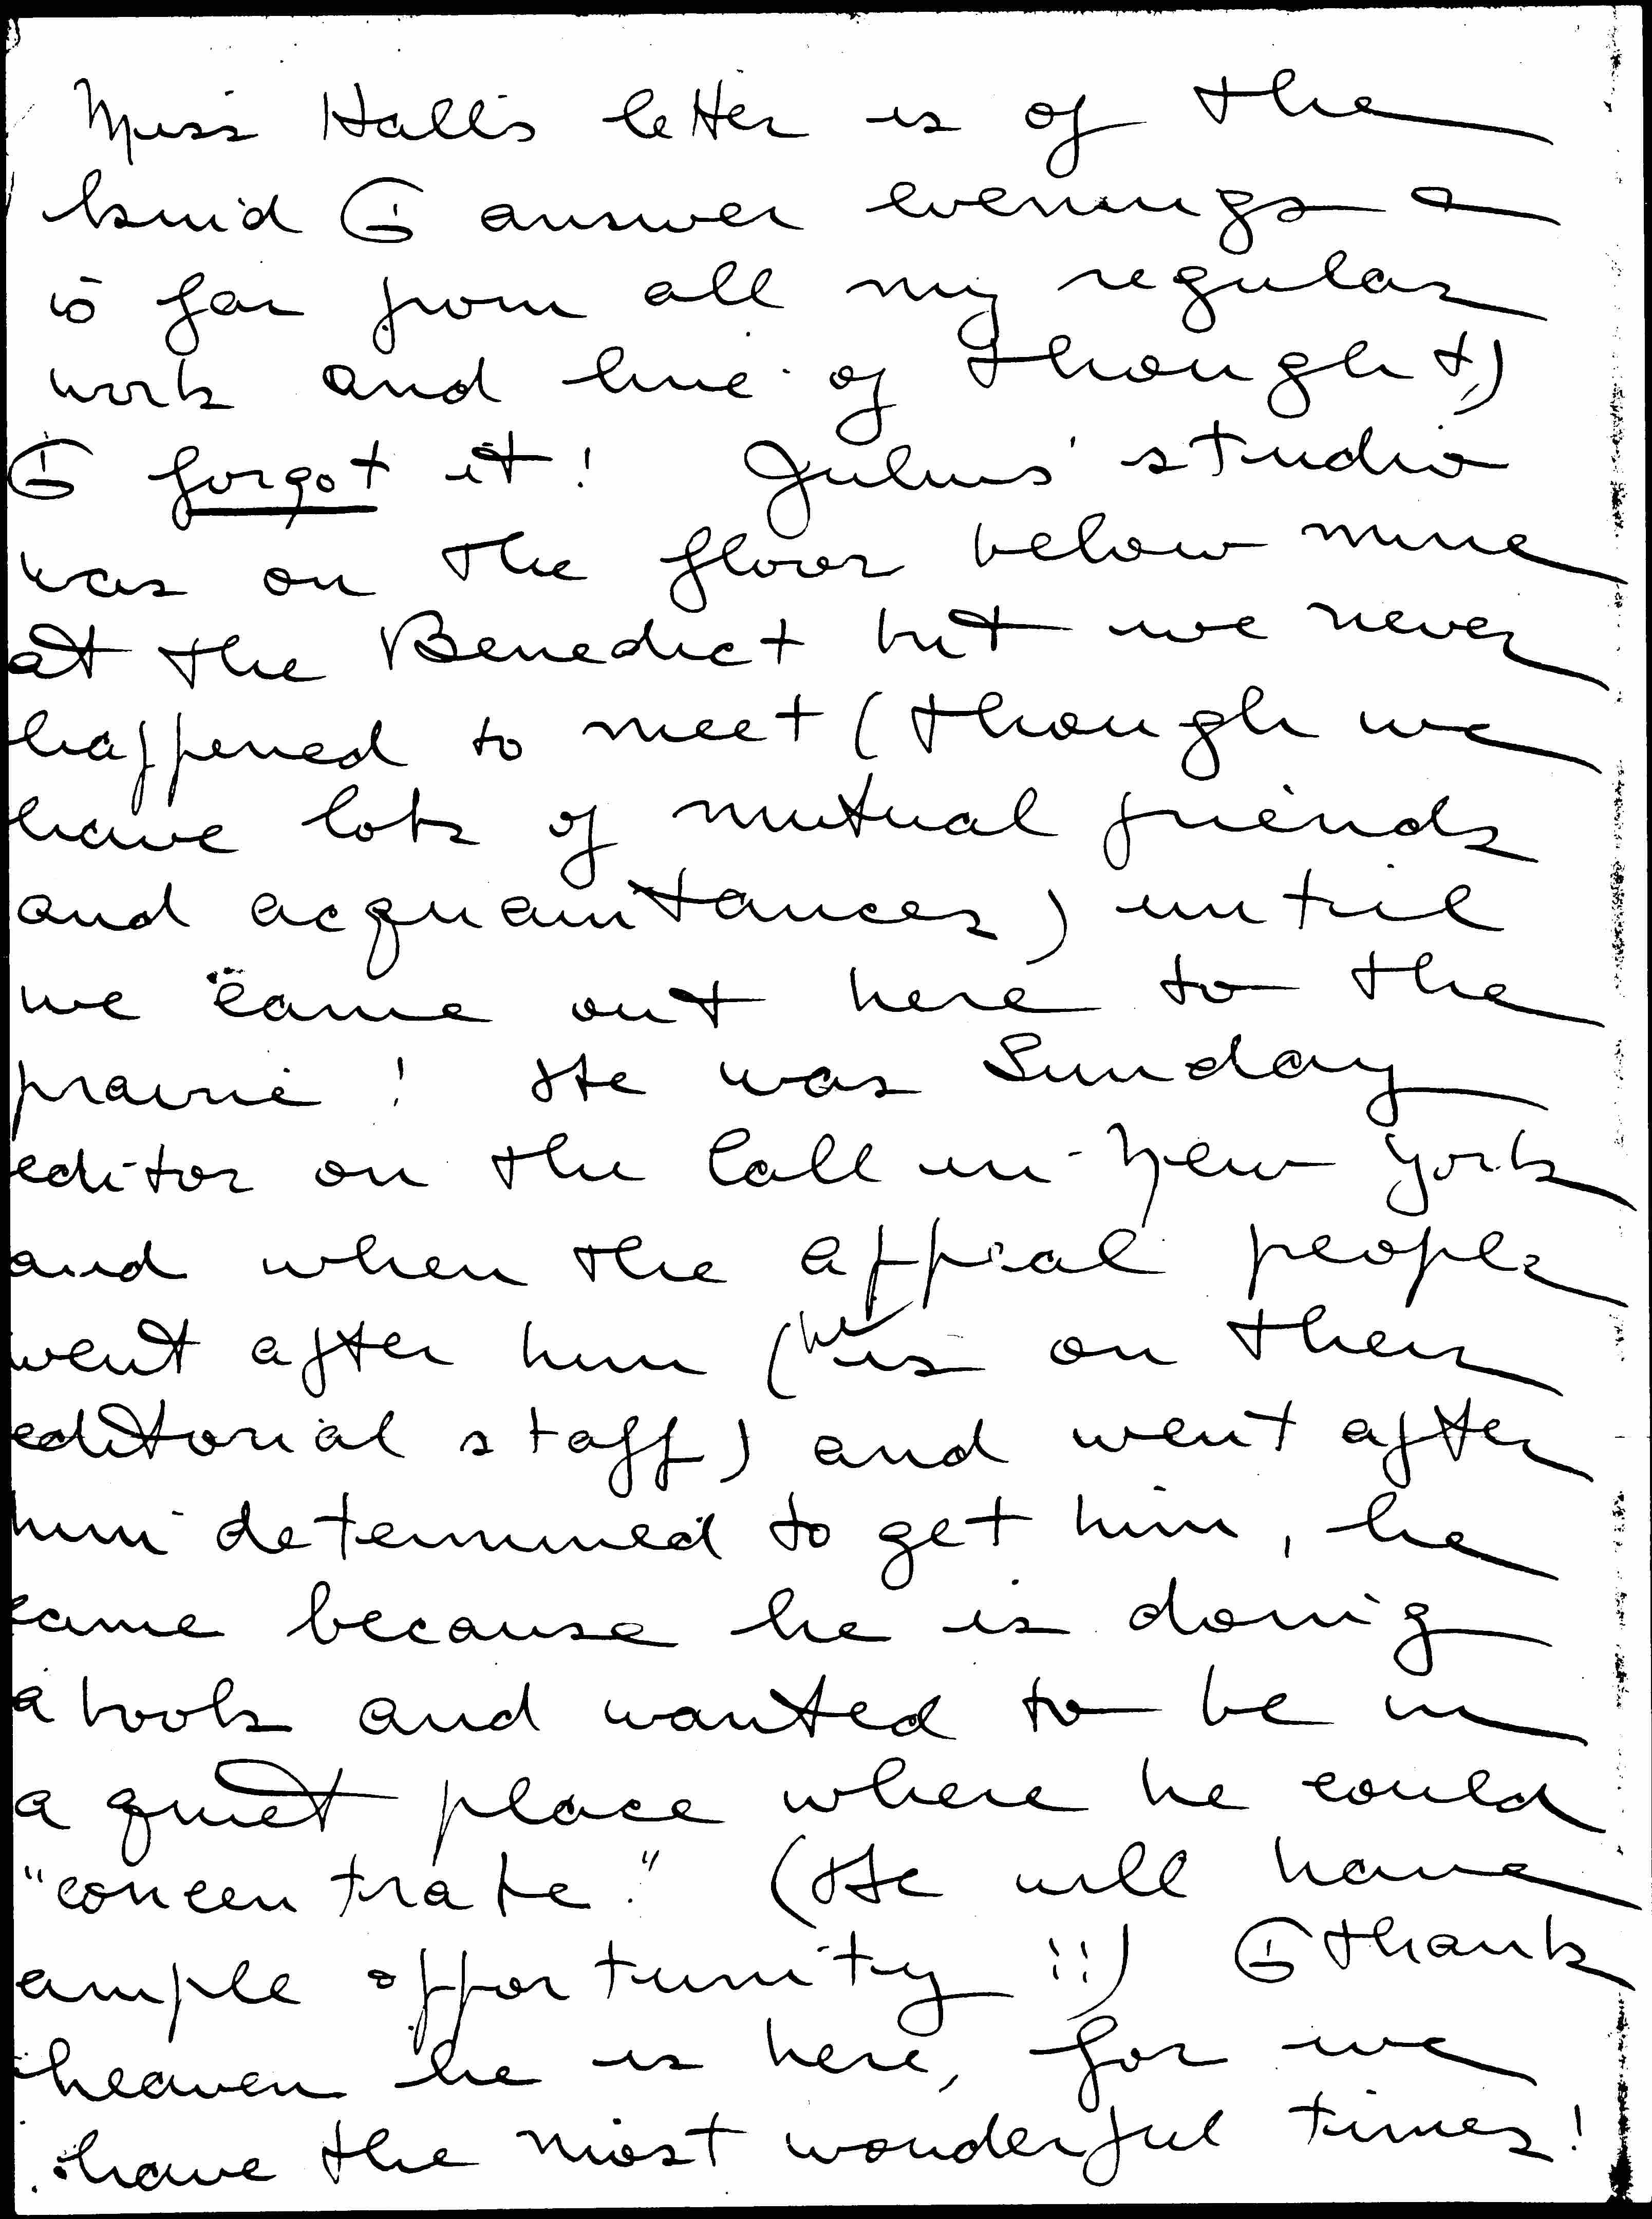 Miss Hall's letter is of the
kind I answer evenings &
is far from all my regular
work and line of thought,)
I forgot it! Julius' studio
was on the floor below mine
at the Benedict but we never
happened to meet (though we
have lots of mutual friends
and acquaintances) until
we came out here to the
prairie! He was Sunday
editor on the Call in New York
and when the Appeal people
went after him (he is on their
editorial staff) and went after
him determined to get him, he
came because he is doing
a book and wanted to be in
a quiet place where he could
"concentrate." (He will have
ample opportunity!!) I thank
heaven he is here, for we
have the most wonderful times!